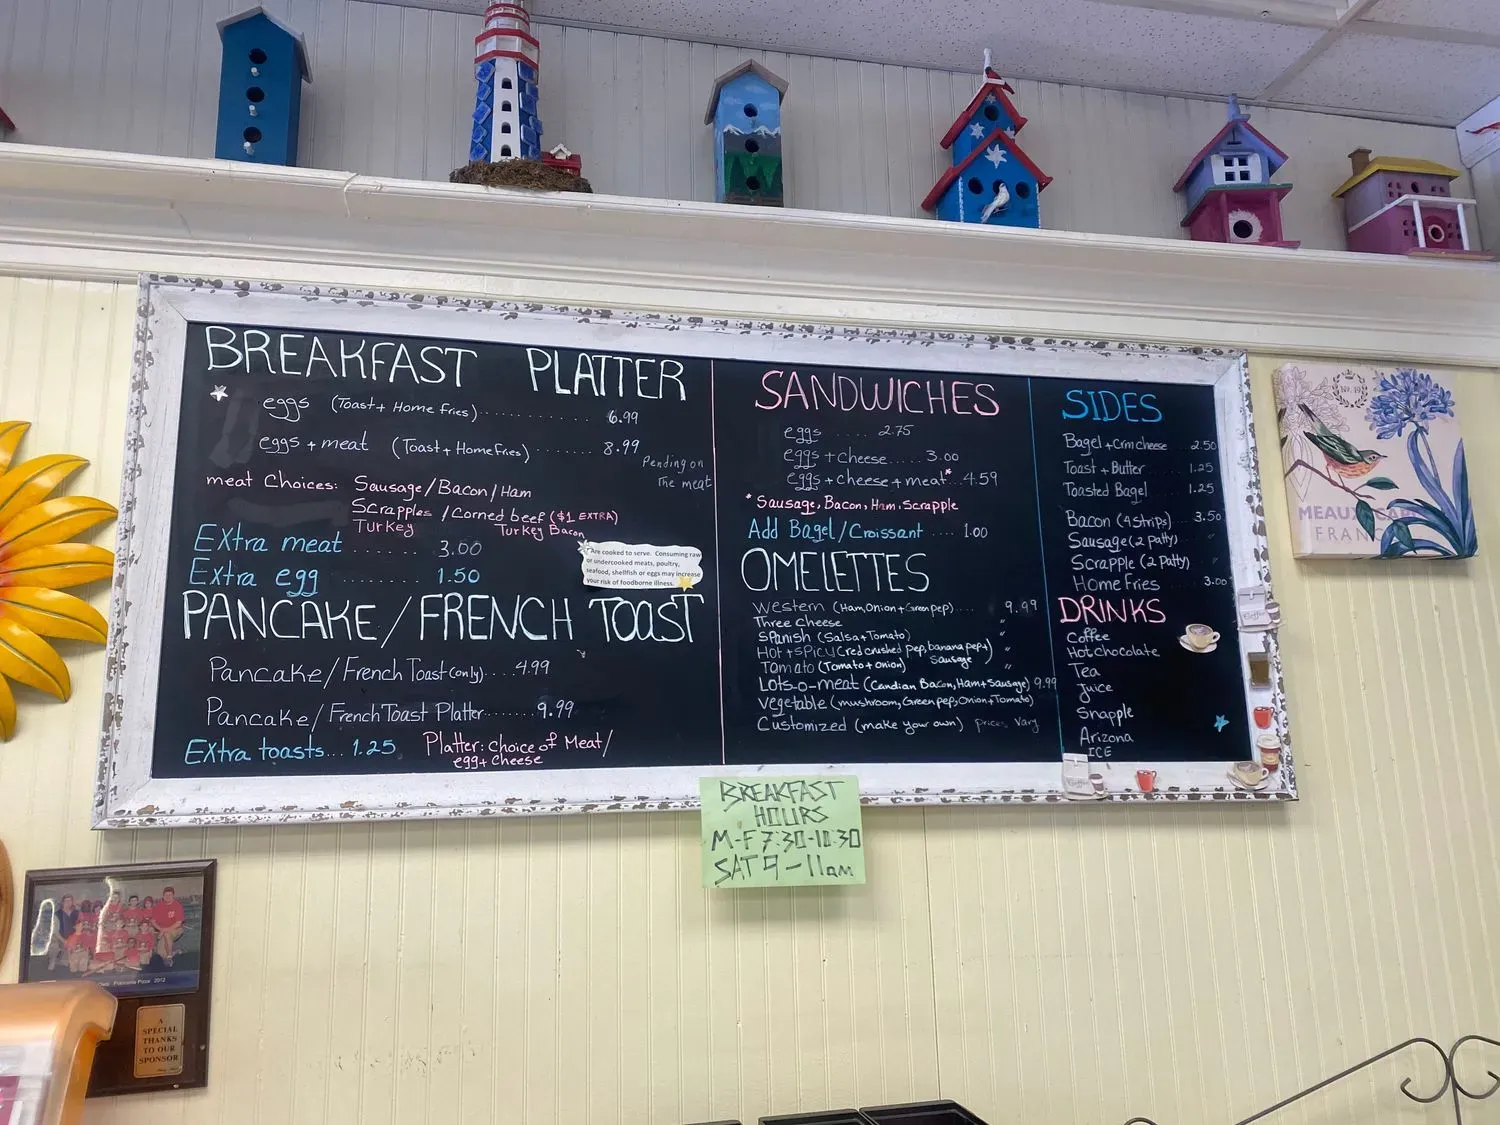 BREAKFAST PLATTER
eggs (Toast + Home Fries) ............. 6.99
eggs + meat (Toast + Home Fries) ....... 8.99
Pending on
The meat
meat Choices: Sausage/Bacon/Ham
Scrapples /Corned beef ($1 EXTRA)
Turkey Turkey Bacon
Extra meat ...... 3.00
Extra egg ......... 1.50
Are cooked to serve. Consuming raw
or undercooked meats, poultry,
seafood, shellfish or eggs may increase
your risk of foodborne illness.
PANCAKE/FRENCH TOAST
Pancake/French Toast (only).... 4.99
Pancake/French Toast Platter....... 9.99
Extra toasts... 1.25
Platter: choice of Meat/
egg + cheese
SANDWICHES
eggs .... 2.75
eggs + cheese..... 3.00
eggs + cheese + meat*...4.59
* Sausage, Bacon, Ham, Scrapple
Add Bagel/Croissant .... 1.00
OMELETTES
Western (Ham, Onion + Green pep) ... 9.99
Three Cheese "
Spanish (Salsa + Tomato)
Hot + Spicy (red crushed pep, banana pep +) "
Sausage
Tomato (Tomato + onion) "
Lots-o-meat (Candian Bacon, Ham + Sausage) 9.99
Vegetable (mushroom, Green pep, Onion + Tomato)
Customized (make your own) prices vary
SIDES
Bagel + Crm cheese 2.50
Toast + Butter 1.25
Toasted Bagel 1.25
Bacon (4 strips) 3.50
Sausage (2 patty) "
Scrapple (2 Patty) "
Home Fries 3.00
DRINKS
Coffee
Hot chocolate
Tea
Juice
Snapple
Arizona
ICE
BREAKFAST
HOURS
M-F 7:30-10:30
SAT 9-11am
MEAUX
FRANC
2012
A
SPECIAL
THANKS
TO OUR
SPONSOR